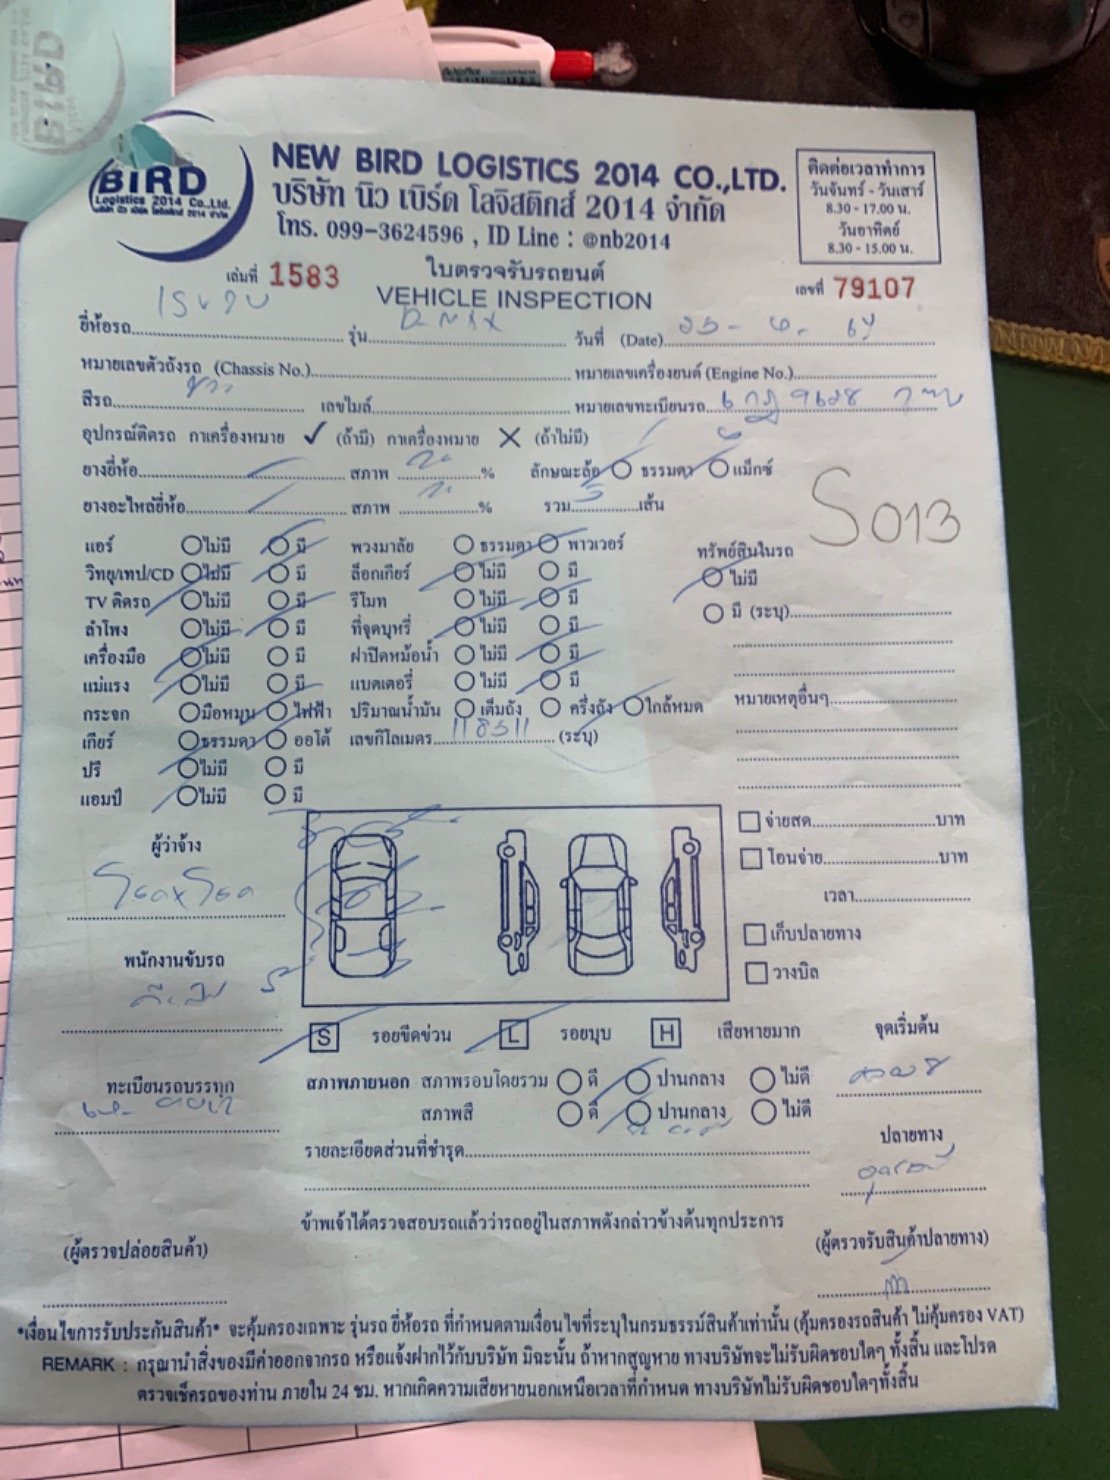 BIRD
Logistics 2014 Co.,Ltd.
บริษัท นิว เบิร์ด โลจิสติกส์ 2014 จำกัด
NEW BIRD LOGISTICS 2014 CO.,LTD.
บริษัท นิว เบิร์ด โลจิสติกส์ 2014 จำกัด
โทร. 099-3624596 , ID Line : @nb2014
ติดต่อเวลาทำการ
วันจันทร์ - วันเสาร์
8.30 - 17.00 น.
วันอาทิตย์
8.30 - 15.00 น.
เล่มที่ 1583
ใบตรวจรับรถยนต์
VEHICLE INSPECTION
เลขที่ 79107
ยี่ห้อรถ ISUZU รุ่น D-MAX วันที่ (Date)
หมายเลขตัวถังรถ (Chassis No.) หมายเลขเครื่องยนต์ (Engine No.)
สีรถ เลขไมล์ หมายเลขทะเบียนรถ
อุปกรณ์ติดรถ กาเครื่องหมาย ✓ (ถ้ามี) กาเครื่องหมาย ✗ (ถ้าไม่มี)
ยางยี่ห้อ สภาพ % ลักษณะล้อ ธรรมดา แม็กซ์
ยางอะไหล่ยี่ห้อ สภาพ % รวม 5 เส้น
S013
แอร์ ไม่มี มี พวงมาลัย ธรรมดา พาวเวอร์ ทรัพย์สินในรถ
วิทยุ/เทป/CD ไม่มี มี ล็อกเกียร์ ไม่มี มี ไม่มี
TV ติดรถ ไม่มี มี รีโมท ไม่มี มี มี (ระบุ)
ลำโพง ไม่มี มี ที่จุดบุหรี่ ไม่มี มี
เครื่องมือ ไม่มี มี ฝาปิดหม้อน้ำ ไม่มี มี
แม่แรง ไม่มี มี แบตเตอรี่ ไม่มี มี หมายเหตุอื่นๆ
กระจก มือหมุน ไฟฟ้า ปริมาณน้ำมัน เต็มถัง ครึ่งถัง ใกล้หมด
เกียร์ ธรรมดา ออโต้ เลขกิโลเมตร 118511 (ระบุ)
ปรี ไม่มี มี
แอมป์ ไม่มี มี
จ่ายสด บาท
ผู้ว่าจ้าง
โอนจ่าย บาท
เวลา
เก็บปลายทาง
พนักงานขับรถ
วางบิล
S รอยขีดข่วน L รอยบุบ H เสียหายมาก จุดเริ่มต้น
ทะเบียนรถบรรทุก
สภาพภายนอก สภาพรอบโดยรวม ดี ปานกลาง ไม่ดี
สภาพสี ดี ปานกลาง ไม่ดี
ปลายทาง
รายละเอียดส่วนที่ชำรุด
ข้าพเจ้าได้ตรวจสอบรถแล้วว่ารถอยู่ในสภาพดังกล่าวข้างต้นทุกประการ
(ผู้ตรวจปล่อยสินค้า) (ผู้ตรวจรับสินค้าปลายทาง)
*เงื่อนไขการรับประกันสินค้า* จะคุ้มครองเฉพาะ รุ่นรถ ยี่ห้อรถ ที่กำหนดตามเงื่อนไขที่ระบุในกรมธรรม์สินค้าเท่านั้น (คุ้มครองรถสินค้า ไม่คุ้มครอง VAT)
REMARK : กรุณานำสิ่งของมีค่าออกจากรถ หรือแจ้งฝากไว้กับบริษัท มิฉะนั้น ถ้าหากสูญหาย ทางบริษัทจะไม่รับผิดชอบใดๆ ทั้งสิ้น และโปรด
ตรวจเช็ครถของท่าน ภายใน 24 ชม. หากเกิดความเสียหายนอกเหนือเวลาที่กำหนด ทางบริษัทไม่รับผิดชอบใดๆทั้งสิ้น